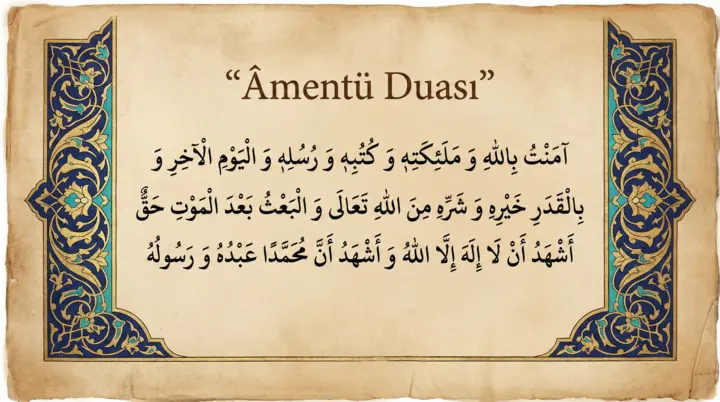 “Âmentü Duası”
آمَنْتُ بِاللهِ وَ مَلَئِكَتِهٖ وَ كُتُبِهٖ وَ رُسُلِهٖ وَ الْيَوْمِ الْآخِرِ وَ
بِالْقَدَرِ خَيْرِهِ وَ شَرِّهِ مِنَ اللهِ تَعَالَى وَ الْبَعْثُ بَعْدَ الْمَوْتِ حَقٌّ
أَشْهَدُ أَنْ لَا إِلَهَ إِلَّا اللهُ وَ أَشْهَدُ أَنَّ مُحَمَّدًا عَبْدُهُ وَ رَسُولُهُ